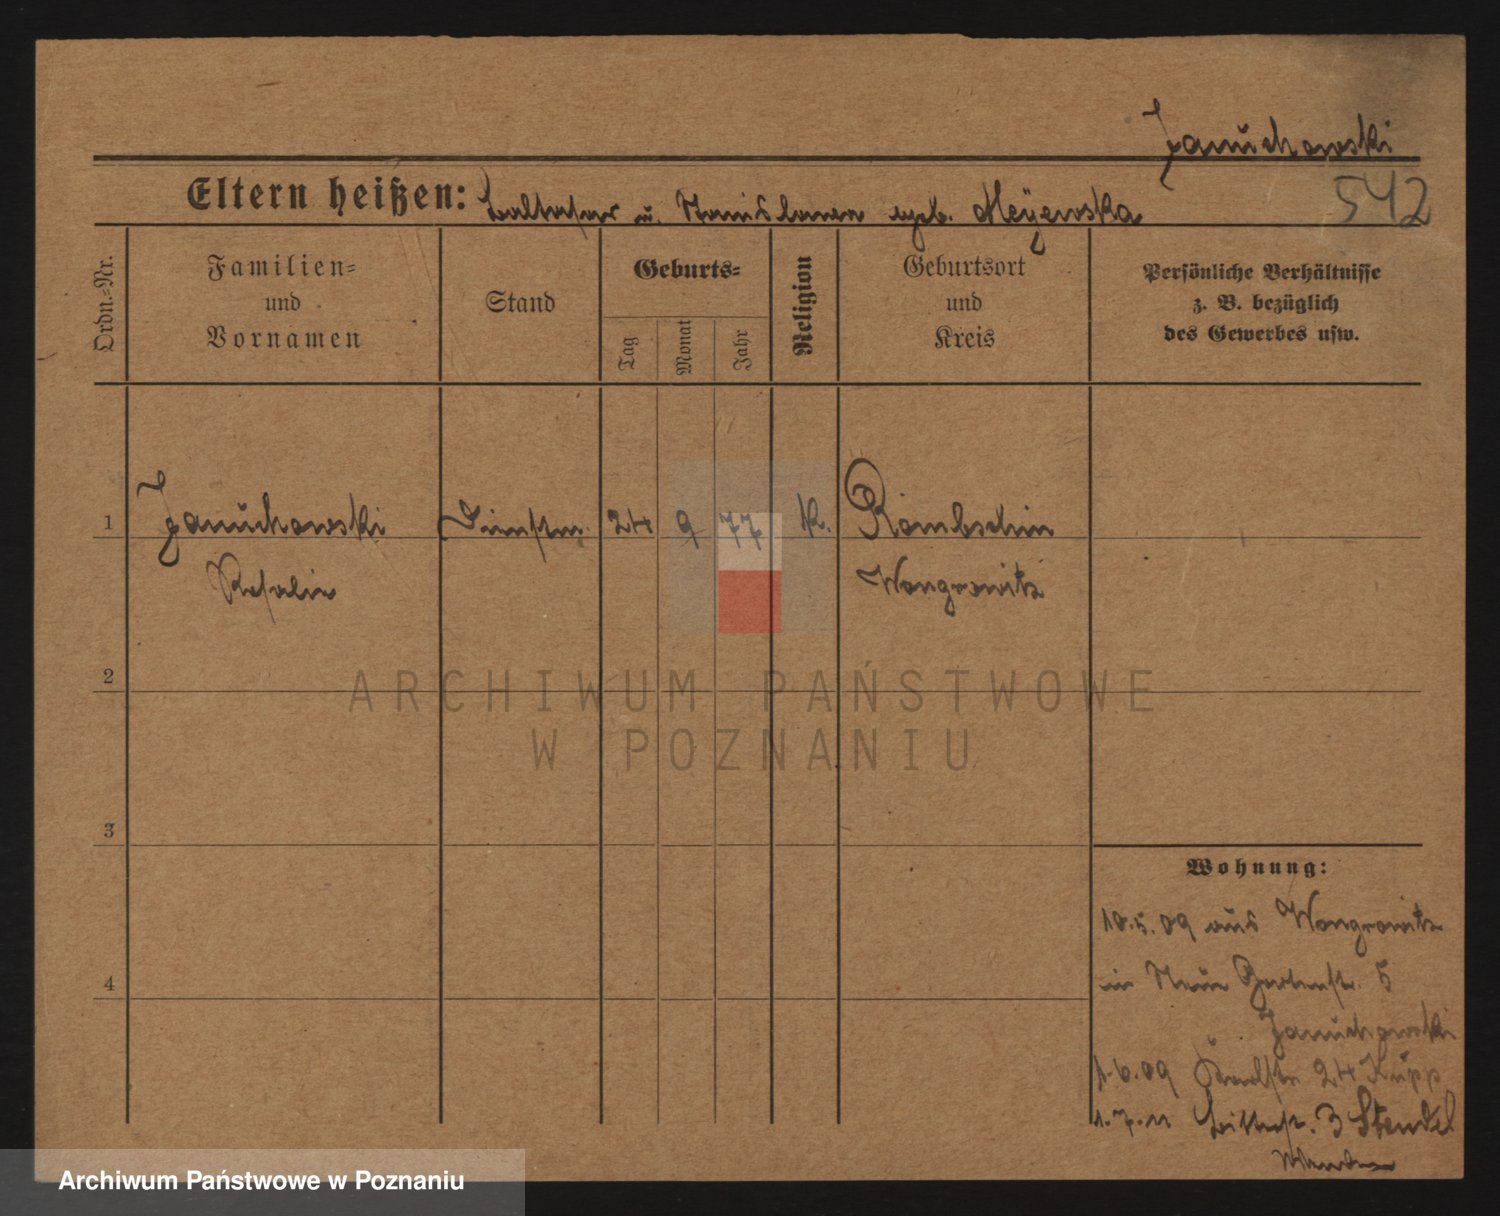 Januchowski
Eltern heißen: Baltasar u. Stanislawa geb. Meyewska
542
Ordn.-Nr.
Familien-
und
Vornamen
Stand
Geburts-
Tag
Monat
Jahr
Religion
Geburtsort
und
Kreis
Persönliche Verhältnisse
z. B. bezüglich
des Gewerbes usw.
1 Januchowski Dienstm. 24 9 77 K. Rombschin
Rosalie Wongrowitz
2
ARCHIWUM PAŃSTWOWE
W POZNANIU
3
Wohnung:
10.5.09 aus Wongrowitz
in Neue Gartenstr. 5
4
Januchowski
1.6.09 24 Kupp
1.7.11 Bitterstr. 3 Stendel
Archiwum Państwowe w Poznaniu